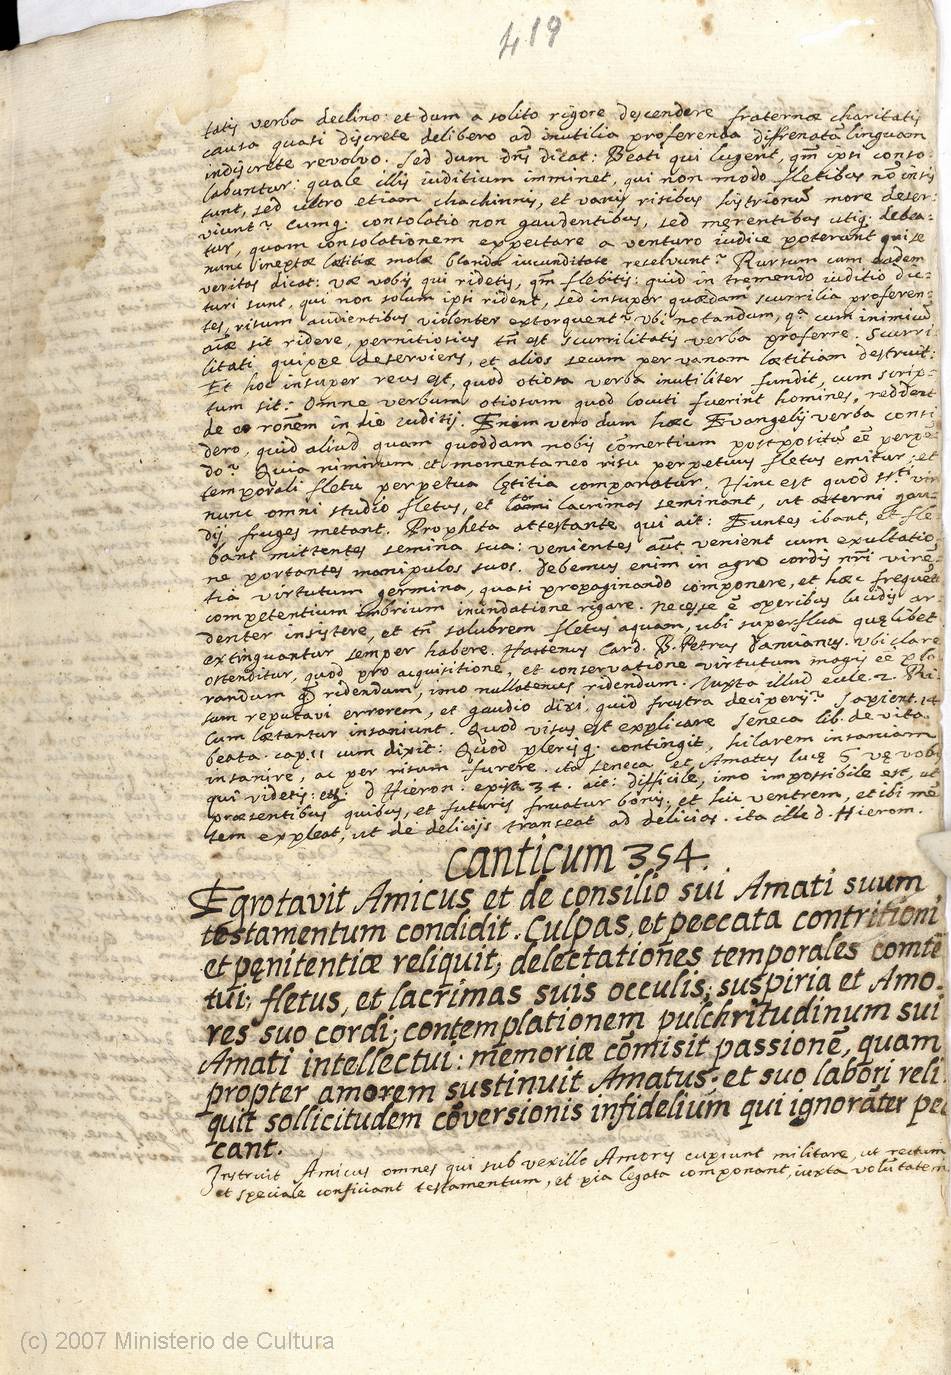 419
tatis verba declino: et dum a solito rigore descendere fraternæ charitatis
causa quasi discrete delibero ad inutilia proferenda diffrenatã linguam
indiscrete revolvo. Sed dum dñs dicat: Beati qui lugent, qm̃ ipsi conso-
labuntur: quale illis iuditium imminet, qui non modo fletibus nõ insis
tunt, sed ultro etiam chachinnis, et varijs risibus histrionũ more deser-
viunt? Cumq. consolatio non gaudentibus, sed merentibus utiq. debea-
tur, quam consolationem expectare a venturo iudice poterunt qui se
nunc ineptæ lætitiæ malæ blanda iucunditate resolvunt? Rursum cum eadem
veritas dicat: væ vobis qui ridetis, qm̃ flebitis: quid in tremendo iuditio dic-
turi sunt, qui non solum ipsi rident, sed insuper quædam scurrilia proferen-
tes, risum audientibus violenter extorquent? ubi notandum, qª cum inimicũ
aĩæ sit ridere, pernitiosius tñ est scurrilitatis verba proferre. Scurri
litati quippe deserviens, et alios secum per vanam lætitiam destruit:
Et hoc insuper reus est, quod otiosa verba inutiliter fundit, cum scrip-
tum sit: Omne verbum otiosum quod locuti fuerint homines, reddent
de eo roñem in die iuditij. Enim vero dum hæc Evangelij verba consi
dero, quid aliud quam quoddam nobis cõmertium postpositũ eẽ perpẽ-
do? Quia nimirum et momentaneo risu perpetuus fletus emitur, et
temporali fletu perpetua lętitia comparatur. Hinc est quod sti viri
nunc omni studio fletus, et lacrimas seminant, ut æterni gau-
dij fruges metant. Propheta attestante qui ait: Euntes ibant, et fle-
bant mittentes semina sua: venientes aũt venient cum exultatio-
ne portantes manipulos suos. Debemus enim in agro cordis nr̃i virẽ-
tia virtutum germina, quasi propaginando componere, et hæc frequẽti
competentium imbrium inundatione rigare. necesse ẽ operibus lucidis ar-
denter insistere, et tñ salubrem fletus aquam, ubi superflua quęlibet
extinguantur semper habere. Hactenus Card. B. Petrus Damianus. Ubi clare
ostenditur, quod pro acquisitione, et conservatione virtutum magis eẽ plo
randum q̃ ridendum, imo nullatenus ridendum. Iuxta illud eccle. 2. Ri-
sum reputavi errorem, et gaudio dixi, quid frustra deciperis? Sapient. 14
Cum lætantur insaniunt. Quod visus est explicare Seneca lib. de vita
beata. cap. 11 cum dixit: Quod plerisq. contingit, hilarem insaniam
insanire, ac per risum furere. ita Seneca et Amatus lucę 6 vę vobis
qui ridetis: D Hieron. epist. 34. ait: difficile, imo impossibile est, ut
præsentibus quibus, et futuris fruatur bonis: et hic ventrem, et ibi mẽ
tem expleat, ut de delicijs transeat ad delicias. ita ille d. Hierom.
Canticum 354.
Egrotavit Amicus et de consilio sui Amati suum
testamentum condidit. Culpas, et peccata contritioni
et pęnitentiæ reliquit; delectationes temporales comtẽ
tui; fletus, et lacrimas suis occulis; suspiria et Amo-
res suo cordi; contemplationem pulchritudinum sui
Amati intellectui: memoriæ cõmisit passionẽ, quam
propter amorem sustinuit Amatus: et suo labori reli
quit sollicitudem cõversionis infidelium qui ignorãter pec
cant.
Instruit Amicus omnes qui sub vexillo Amoris cupiunt militare, ut rectum,
et speciale conficiant testamentum, et pia legata componant, iuxta volũtatem
(c) 2007 Ministerio de Cultura